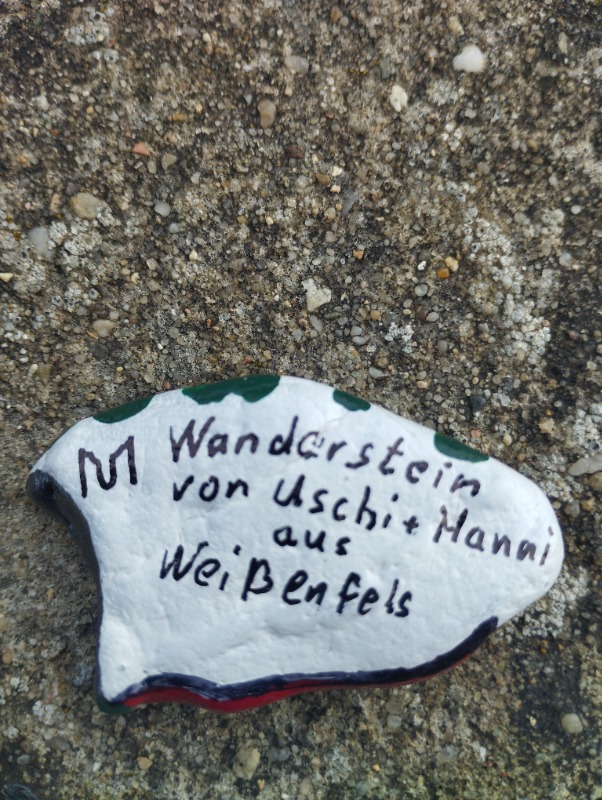 M Wanderstein
von Uschi + Manni
aus
Weißenfels